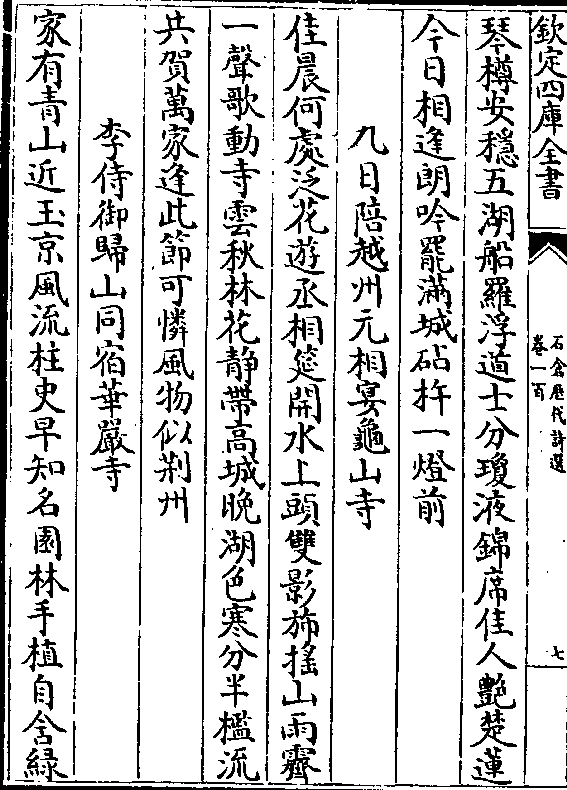 欽定四庫全書
石倉歷代詩選
卷一百
七
琴樽安穩五湖船羅浮道士分瓊液錦席佳人艷楚蓮
今日相逢朗吟罷滿城砧杵一燈前
九日陪越州元相宴龜山寺
佳晨何處泛花遊丞相筵開水上頭雙影旆搖山雨霽
一聲歌動寺雲秋林花静帶高城晚湖色寒分半檻流
共賀萬家逢此節可憐風物似荆州
李侍御歸山同宿華嚴寺
家有青山近玉京風流柱史早知名園林手植自含緑